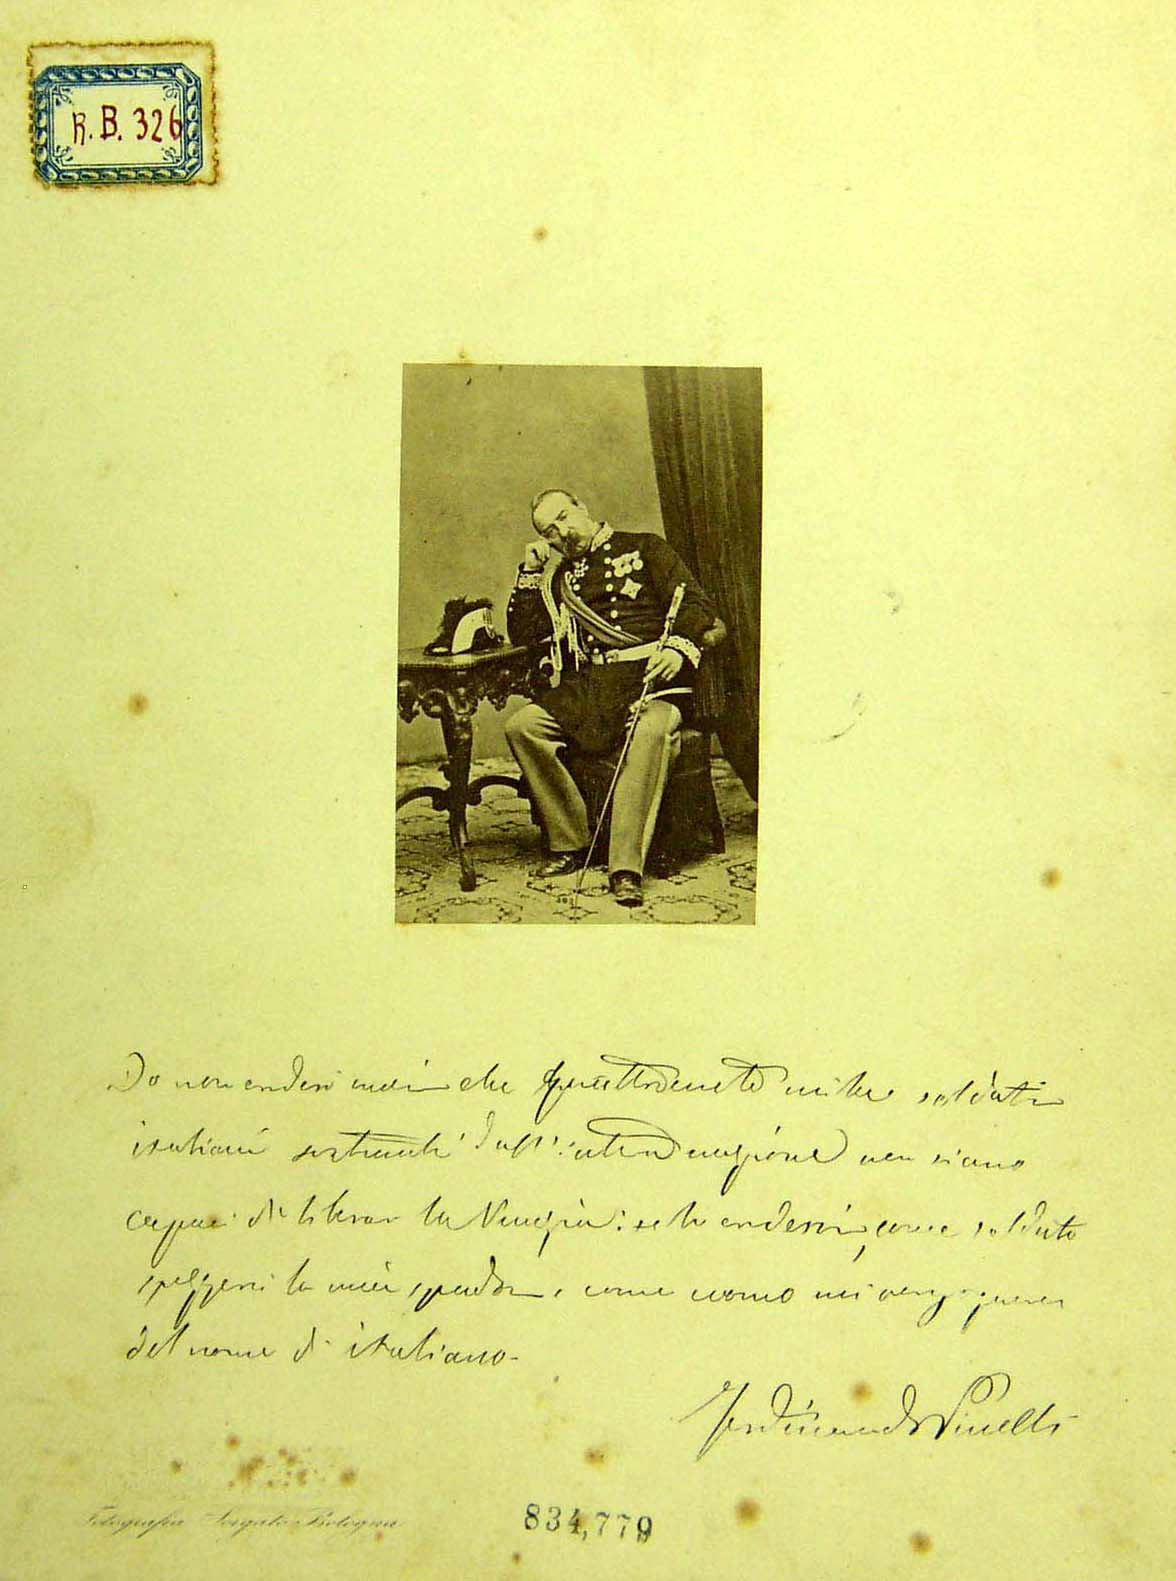 R.B. 326
Io non crederò mai che quattrocento mila soldati
italiani sostenuti dall' intera nazione non siano
capaci di liberar la Venezia: se lo credessi, come soldato
spezzerei la mia spada, come uomo mi vergognerei
del nome di italiano.
Ferdinando Pinelli
Fotografia Sorgato Bologna
834,779